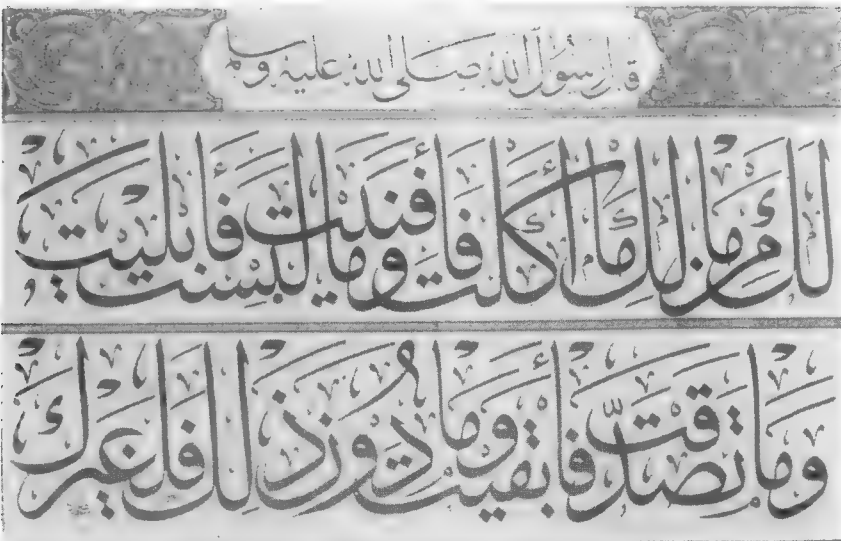 قال رسول الله صلى الله عليه وسلم
لَكَ مِنْ مَالِكَ مَا أَكَلْتَ فَأَفْنَيْتَ وَمَا لَبِسْتَ فَأَبْلَيْتَ
وَمَا تَصَدَّقْتَ فَأَبْقَيْتَ وَمَا دُونَ ذَلِكَ فَلِغَيْرِكَ